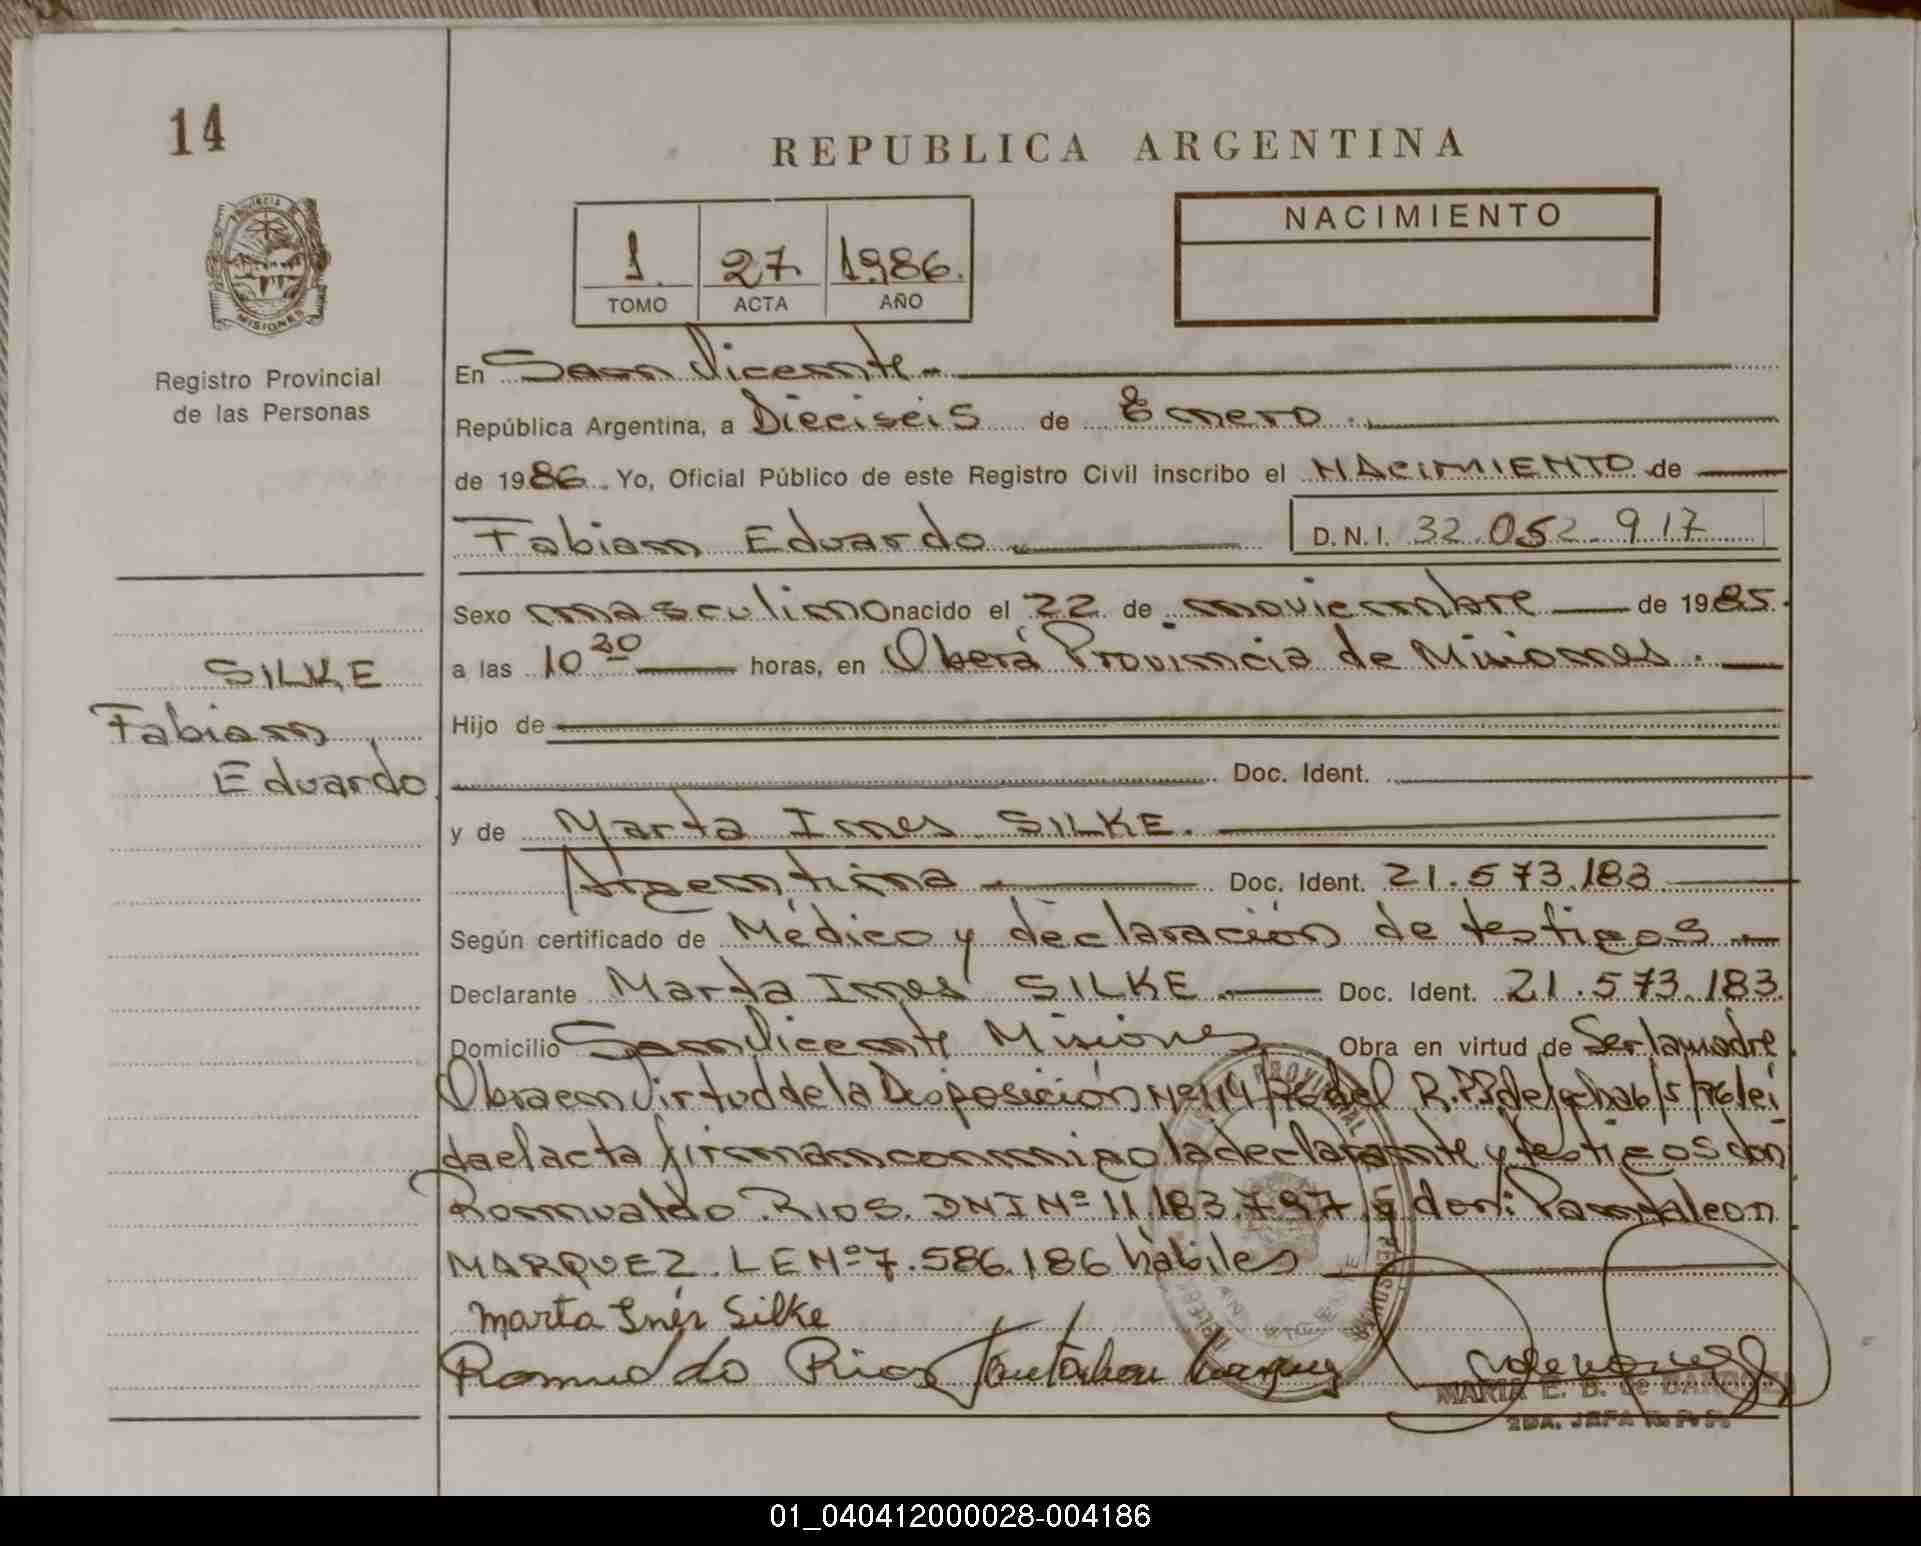 14
REPUBLICA ARGENTINA
PROVINCIA DE
MISIONES
Registro Provincial
de las Personas
1 27 1986.
TOMO ACTA AÑO
NACIMIENTO
En San Vicente
República Argentina, a Dieciseis de Enero
de 1986. Yo, Oficial Público de este Registro Civil inscribo el NACIMIENTO de
Fabian Eduardo D.N.I. 32.052.917
Sexo masculino nacido el 22 de noviembre de 1985.
a las 10 30 horas, en Oberá Provincia de Misiones.
Hijo de
Doc. Ident.
SILKE
Fabian
Eduardo
y de Marta Ines SILKE.
Argentina Doc. Ident. 21.573.183
Según certificado de Médico y declaración de testigos
Declarante Marta Ines SILKE Doc. Ident. 21.573.183
Domicilio San Vicente Misiones Obra en virtud de Ser la madre
Obra en Virtud de la Disposición Nº 114/76 del R.P.P de fecha 6/5/76 lei
da el acta firman conmigo la declarante y testigos don
Romualdo RIOS. DNI Nº 11.183.797 y don: Pantaleon
MARQUEZ. LE Nº 7.586.186 hábiles
Marta Inés Silke
Romualdo Rios Pantaleon Marquez
MARIA E. B. de
2DA. JEFA R. P. P.
01_040412000028-004186